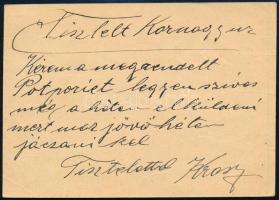 Tisztelt Karnagy úr
Kérem a megrendelt
Potporiét legyen szives
még a héten elküldeni
mert mar jövő héten
jáczani kel
Tisztelettel Krasz